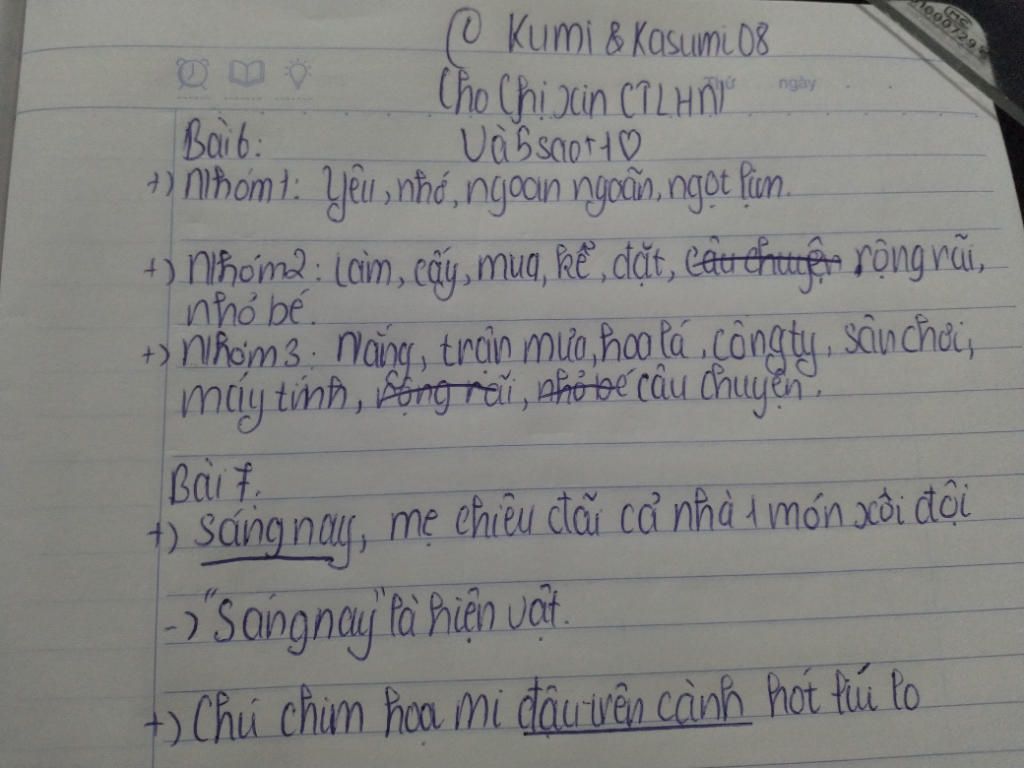 © Kumi & Kasumi 08
Cho Chị xin CTLHN
Thứ ngày
Và 5 sao + 1♡
Bài 6:
+) Nhóm 1: Yêu, nhớ, ngoan ngoãn, ngọt lịm.
+) Nhóm 2: Làm, cấy, mua, kể, đặt, câu chuyện rộng rãi,
nhỏ bé.
+) Nhóm 3: Nắng, trận mưa, hoa lá, công ty, sân chơi,
máy tính, rộng rãi, nhỏ bé câu chuyện.
Bài 7.
+) Sáng nay, mẹ chiêu đãi cả nhà 1 món xôi đội
-> "Sáng nay" là hiện vật.
+) Chú chim họa mi đậu trên cành hót líu lo